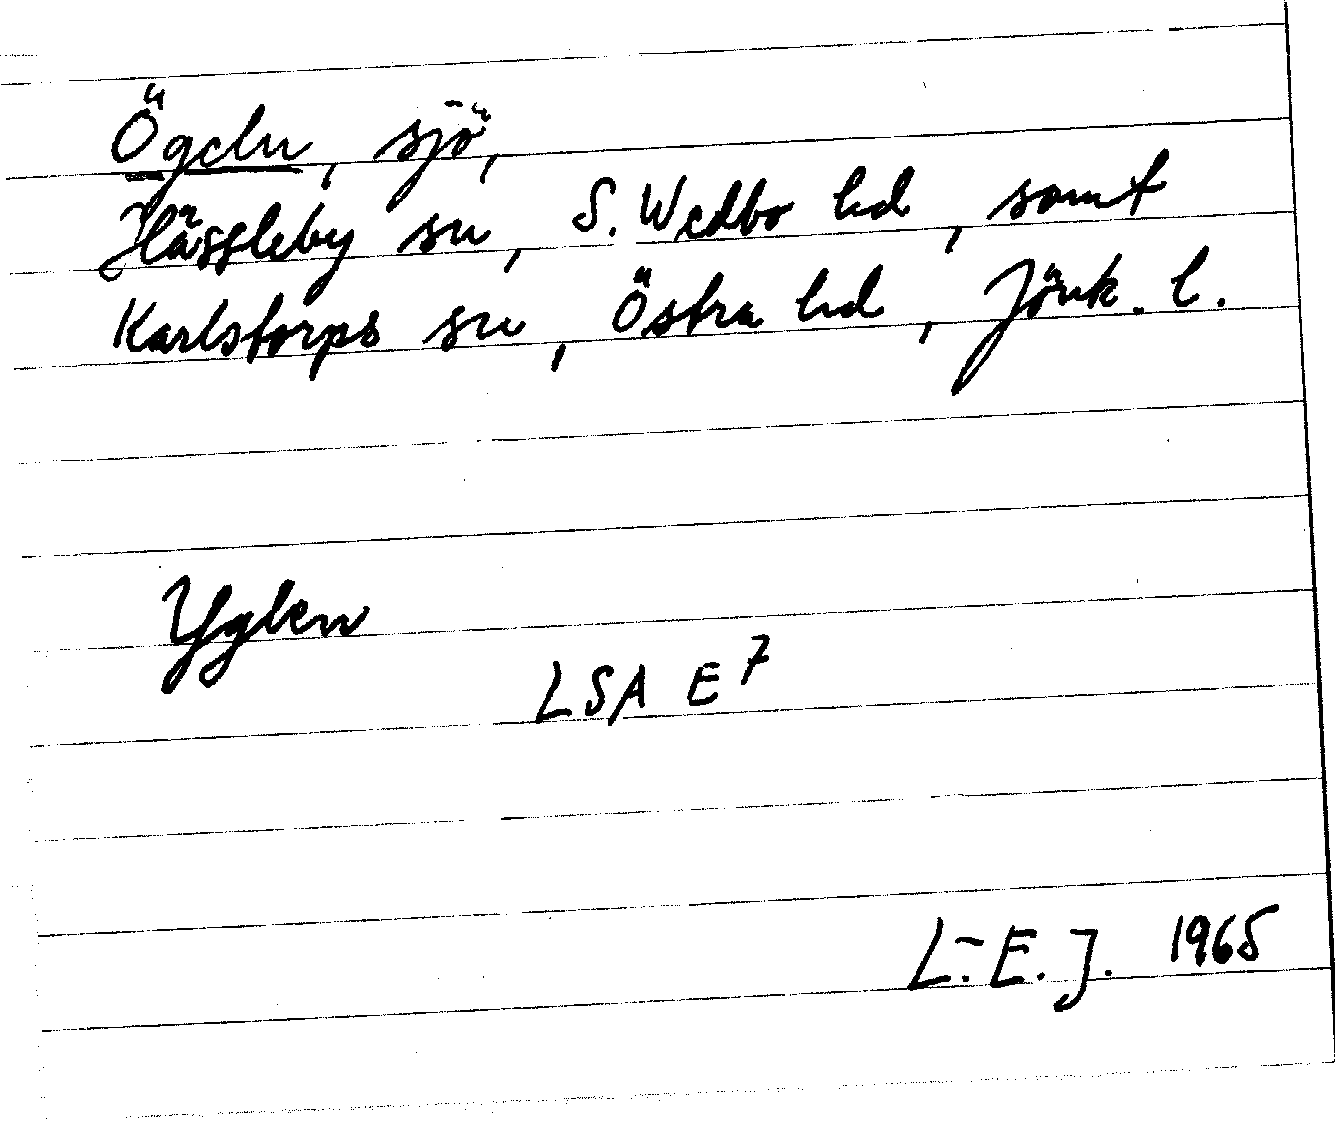 Ögeln, sjö,
Hässleby sn, S. Wedbo hd, samt
Karlstorps sn, Östra hd, Jönk. l.
Yglen
LSA E 7
L.-E. J. 1965